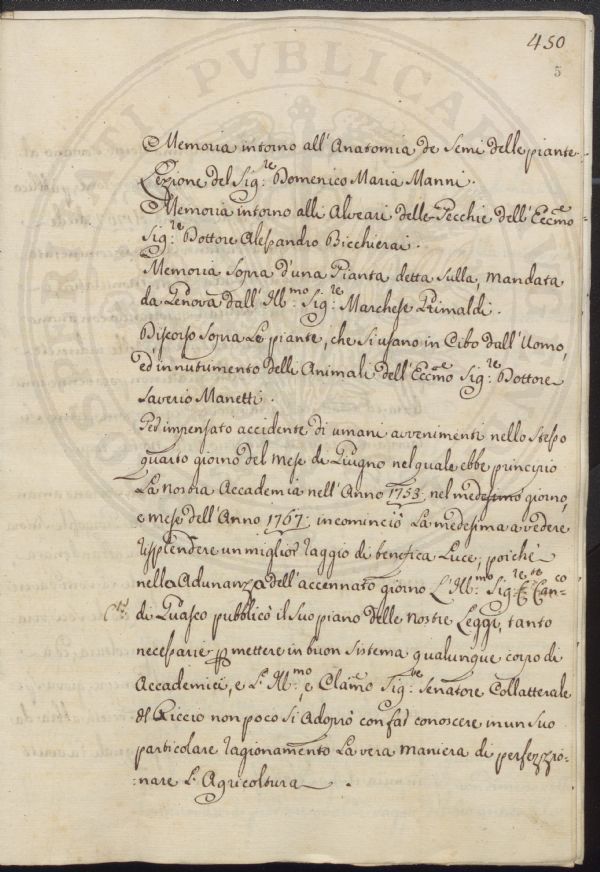 450
5
Memoria intorno all'Anatomia de Semi delle piante
Lezione del Sig:re Domenico Maria Manni.
Memoria intorno alli Alveari delle Pecchie dell'Eccmo
Sig:re Dottore Alessandro Bicchierai.
Memoria Sopra d'una Pianta detta Sulla, mandata
da Genova dall'Illmo: Sig:re Marchese Grimaldi.
Discorso Sopra Le piante, che si usano in Cibo dall'Uomo,
ed in nutrimento delli Animali dell'Eccmo Sig:re Dottore
Saverio Manetti.
Ed impensato accidente di umani avvenimenti nello Stesso
quarto giorno del mese di Giugno nel quale ebbe principio
La nostra Accademia nell'Anno 1753, nel medesimo giorno,
e mese dell'Anno 1767, incominciò La medesima a vedere
risplendere un miglior raggio di benefica Luce, poiché
nella Adunanza dell'accennato giorno L'Illmo: Sig:re
di Guasco pubblicò il Suo piano delle nostre Leggi, tanto
necessarie p mettere in buon sistema qualunque corpo di
Accademici, e L'Illmo: e Clarmo Sig:re Senatore Collatterale
del Riccio non poco Si Adoprò con far conoscere in un Suo
particolare ragionamento La vera maniera di perfezzio:
:nare L'Agricoltura.